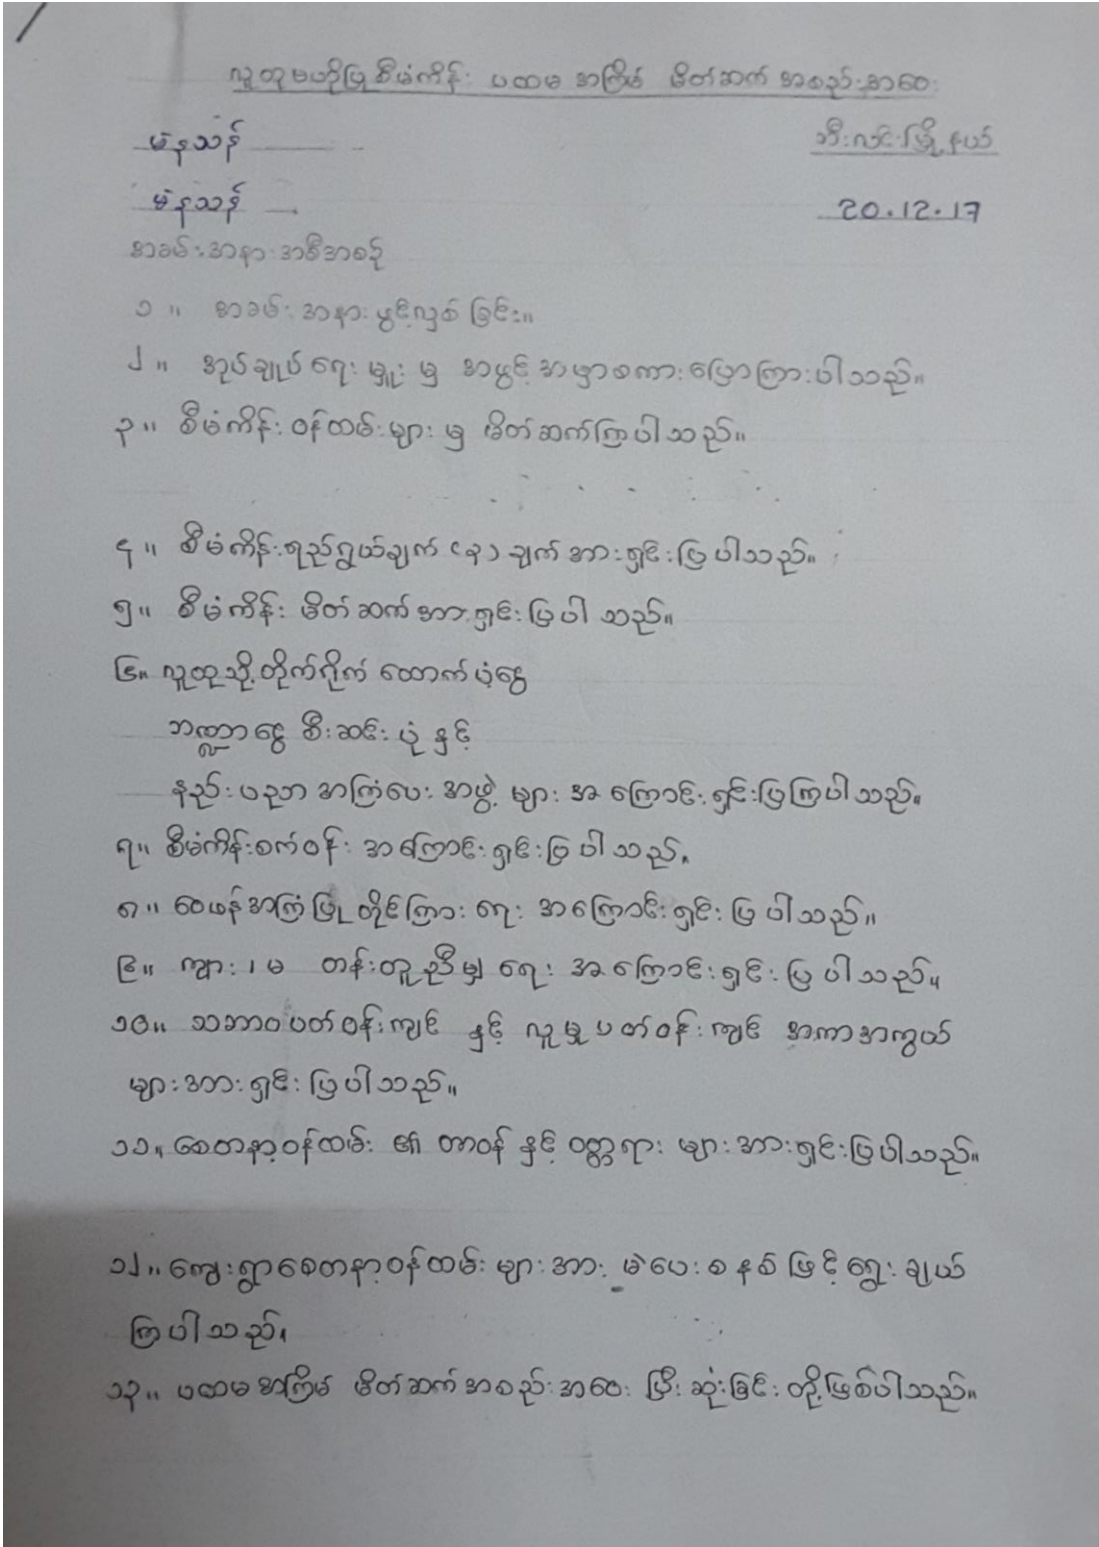 လူထုဗဟိုပြုစီမံကိန်း ပထမ အကြိမ် မိတ်ဆက် အစည်းအဝေး
မဲနသန် ဘီးလင်းမြို့နယ်
မဲနသန် 20.12.17
အခမ်းအနား အစီအစဉ်
၁ ။ အခမ်း အနား ဖွင့်လှစ် ခြင်း။
၂ ။ အုပ်ချုပ် ရေး မှူး မှ အဖွင့် အမှာစကား ပြောကြားပါသည်။
၃ ။ စီမံကိန်း ဝန်ထမ်းများ မှ မိတ်ဆက်ကြပါသည်။
၄ ။ စီမံကိန်းရည်ရွယ်ချက် (၃) ချက် အားရှင်းပြပါသည်။
၅။ စီမံကိန်း မိတ်ဆက်အားရှင်းပြပါသည်။
၆။ လူထုသို့တိုက်ရိုက် ထောက်ပံ့ငွေ
ဘဏ္ဍာငွေ စီးဆင်းပုံ နှင့်
နည်းပညာ အကြံပေး အဖွဲ့ များ အကြောင်းရှင်းပြကြပါသည်။
၇။ စီမံကိန်းစက်ဝန်း အကြောင်းရှင်းပြပါသည်။
၈ ။ ဝေဖန်အကြံပြု တိုင်ကြားရေး အကြောင်းရှင်းပြပါသည်။
၉။ ကျား၊မ တန်းတူညီမျှရေး အကြောင်းရှင်းပြပါသည်။
၁၀။ သဘာဝပတ်ဝန်းကျင် နှင့် လူမှုပတ်ဝန်းကျင် အကာအကွယ်
များအားရှင်းပြပါသည်။
၁၁။ စေတနာ့ဝန်ထမ်း ၏ တာဝန် နှင့် ဝတ္တရား များအားရှင်းပြပါသည်။
၁၂။ ကျေးရွာစေတနာ့ဝန်ထမ်း များအား မဲပေးစနစ်ဖြင့်ရွေးချယ်
ကြပါသည်။
၁၃။ ပထမအကြိမ် မိတ်ဆက်အစည်းအဝေး ပြီးဆုံးခြင်း တို့ဖြစ်ပါသည်။